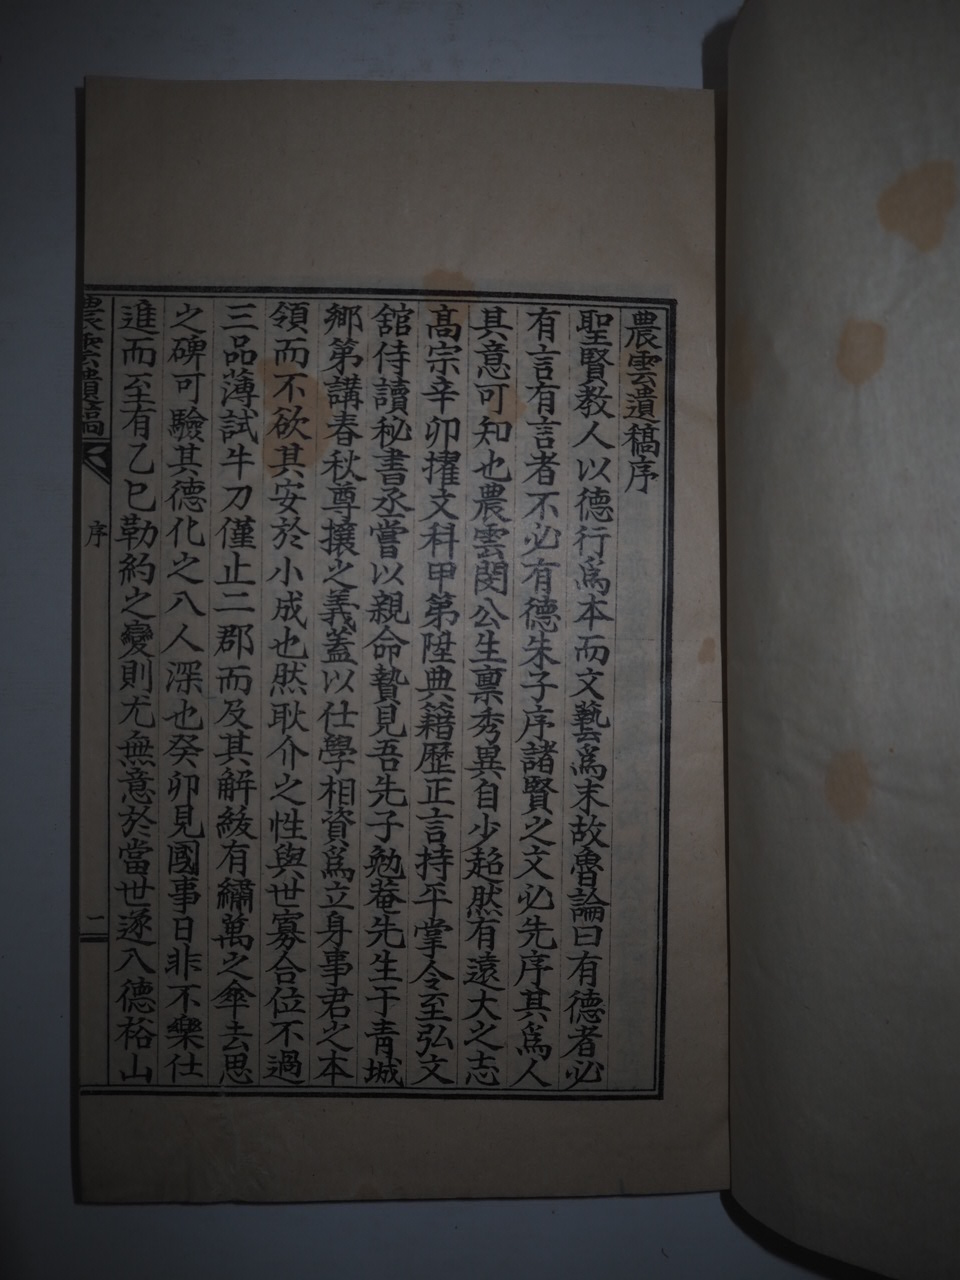 農雲遺稿序
聖賢教人以德行爲本而文藝爲末故魯論曰有德者必
有言有言者不必有德朱子序諸賢之文必先序其爲人
其意可知也農雲閔公生禀秀異自少超然有遠大之志
高宗辛卯擢文科甲第陞典籍歷正言持平掌令至弘文
舘侍讀秘書丞嘗以親命贄見吾先子勉菴先生于青城
鄉第講春秋尊攘之義蓋以仕學相資爲立身事君之本
領而不欲其安於小成也然耿介之性與世寡合位不過
三品薄試牛刀僅止二郡而及其解綬有繡萬之傘去思
之碑可驗其德化之入人深也癸卯見國事日非不樂仕
進而至有乙巳勒約之變則尤無意於當世遂入德裕山
農雲遺稿
序
二